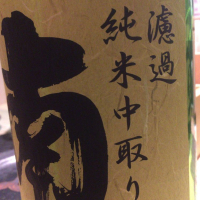 濾過
純米中取り
南